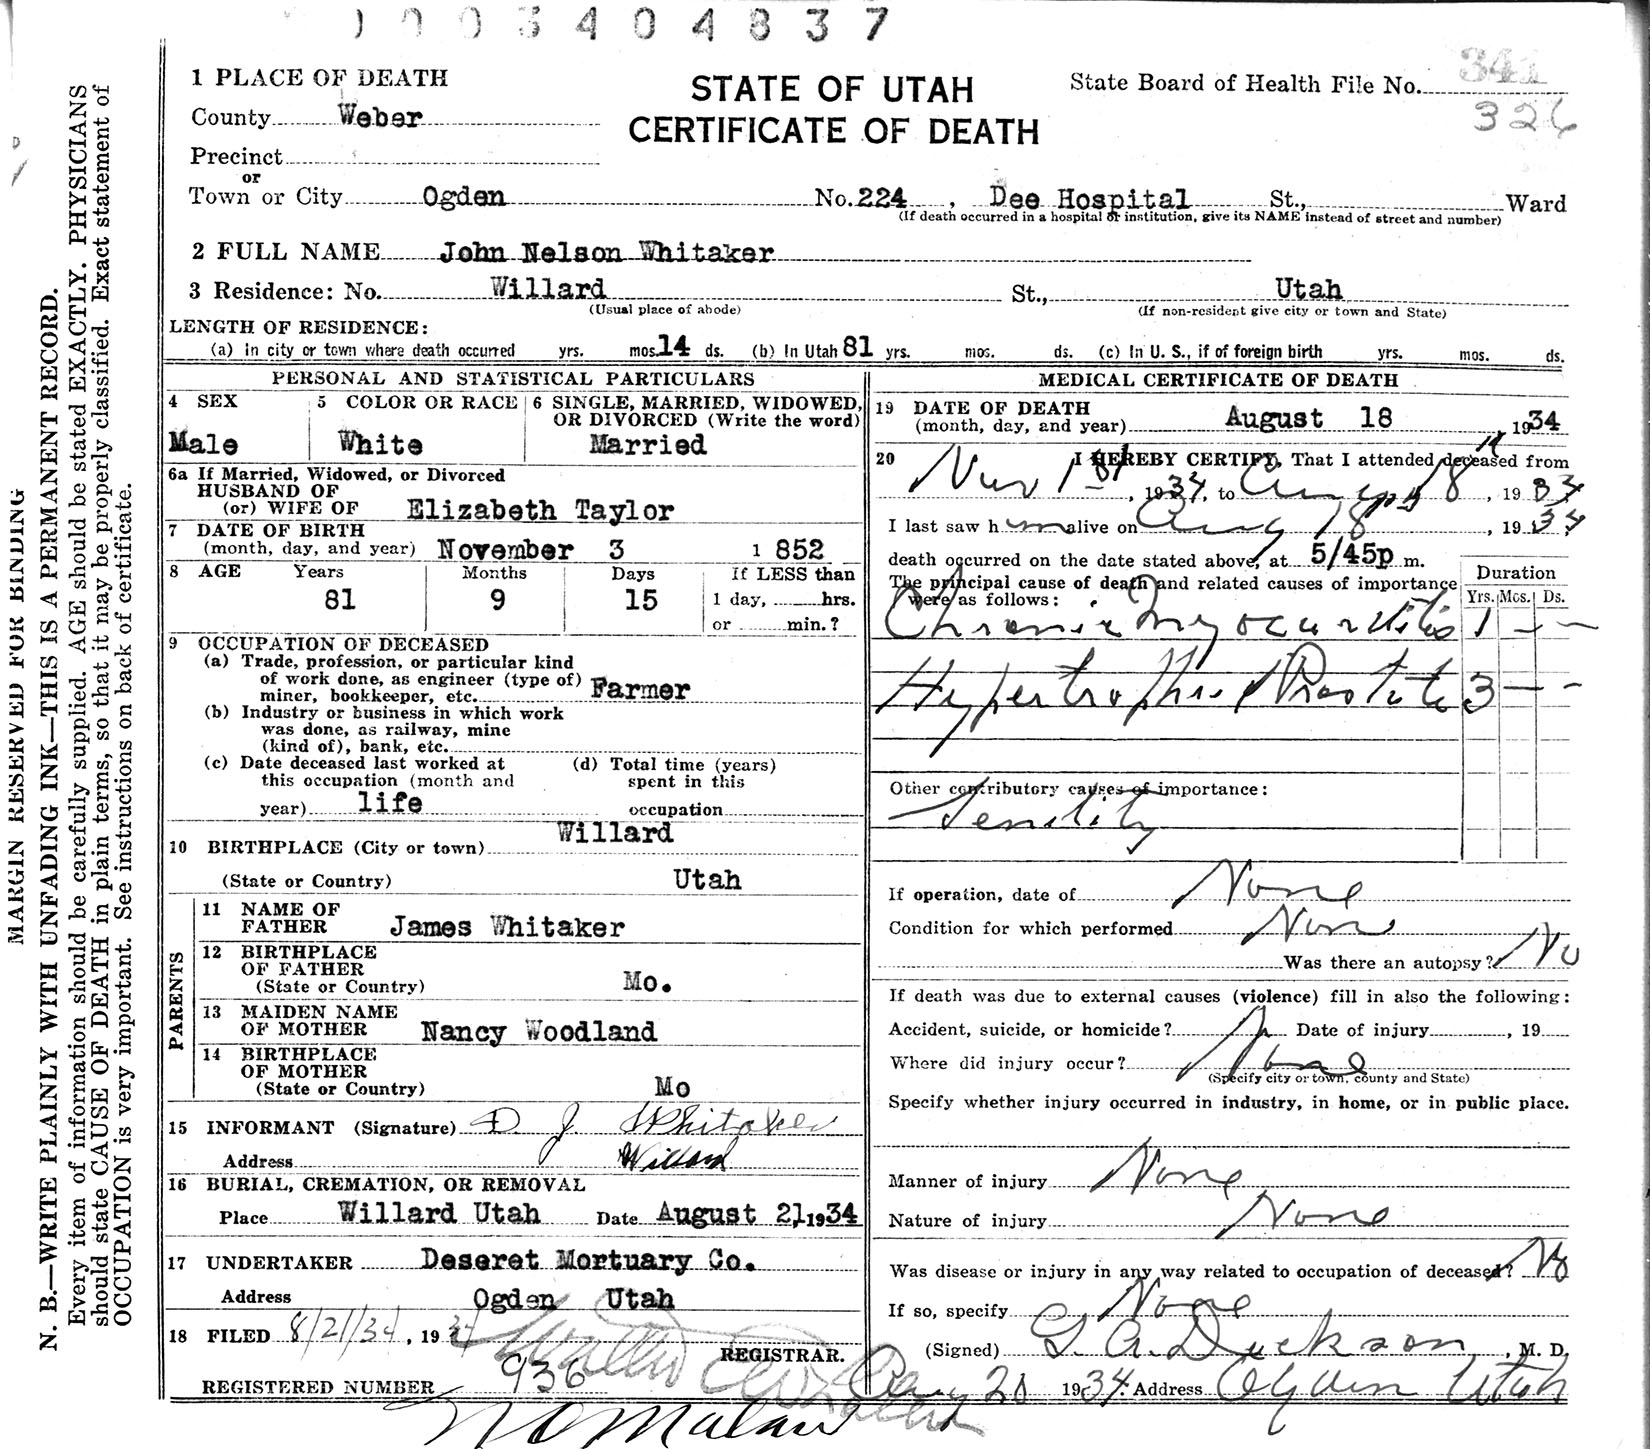 3 4 0 4 8 3 7
341
326
STATE OF UTAH
CERTIFICATE OF DEATH
State Board of Health File No.
1 PLACE OF DEATH
County Weber
Precinct
or
Town or City Ogden No. 224, Dee Hospital St., Ward
(If death occurred in a hospital or institution, give its NAME instead of street and number)
2 FULL NAME John Nelson Whitaker
3 Residence: No. Willard St., Utah
(Usual place of abode) (If non-resident give city or town and State)
LENGTH OF RESIDENCE:
(a) in city or town where death occurred yrs. mos. 14 ds. (b) In Utah 81 yrs. mos. ds. (c) In U. S., if of foreign birth yrs. mos. ds.
PERSONAL AND STATISTICAL PARTICULARS
4 SEX
Male
5 COLOR OR RACE
White
6 SINGLE, MARRIED, WIDOWED,
OR DIVORCED (Write the word)
Married
6a If Married, Widowed, or Divorced
HUSBAND OF
(or) WIFE OF Elizabeth Taylor
7 DATE OF BIRTH
(month, day, and year) November 3 1 852
8 AGE Years Months Days If LESS than
81 9 15 1 day, hrs.
or min.?
9 OCCUPATION OF DECEASED
(a) Trade, profession, or particular kind
of work done, as engineer (type of)
miner, bookkeeper, etc. Farmer
(b) Industry or business in which work
was done, as railway, mine
(kind of), bank, etc.
(c) Date deceased last worked at
this occupation (month and
year) life
(d) Total time (years)
spent in this
occupation
10 BIRTHPLACE (City or town) Willard
(State or Country) Utah
PARENTS
11 NAME OF
FATHER James Whitaker
12 BIRTHPLACE
OF FATHER
(State or Country) Mo.
13 MAIDEN NAME
OF MOTHER Nancy Woodland
14 BIRTHPLACE
OF MOTHER
(State or Country) Mo
15 INFORMANT (Signature) D. J. Whitaker
Address Willard
16 BURIAL, CREMATION, OR REMOVAL
Place Willard Utah Date August 21, 1934
17 UNDERTAKER Deseret Mortuary Co.
Address Ogden Utah
18 FILED 8/21/34, 1934
REGISTRAR.
REGISTERED NUMBER 936
MEDICAL CERTIFICATE OF DEATH
19 DATE OF DEATH
(month, day, and year) August 18, 1934
20 I HEREBY CERTIFY, That I attended deceased from
1st, 1934, to Aug 18, 1934
I last saw him alive on Aug 18, 1934
death occurred on the date stated above, at 5/45p m.
The principal cause of death and related causes of importance
were as follows:
Duration
Yrs. Mos. Ds.
Chronic Myocarditis 1 — —
Hypertrophied Prostate 3 — —
Other contributory causes of importance:
Senility
If operation, date of None
Condition for which performed None
Was there an autopsy? No
If death was due to external causes (violence) fill in also the following:
Accident, suicide, or homicide? Date of injury , 19
Where did injury occur? None
(Specify city or town, county and State)
Specify whether injury occurred in industry, in home, or in public place.
Manner of injury None
Nature of injury None
Was disease or injury in any way related to occupation of deceased? No
If so, specify None
(Signed) G. A. Dickson, M. D.
Aug 20 1934. Address Ogden Utah
MARGIN RESERVED FOR BINDING
N. B.—WRITE PLAINLY WITH UNFADING INK—THIS IS A PERMANENT RECORD.
Every item of information should be carefully supplied. AGE should be stated EXACTLY. PHYSICIANS
should state CAUSE OF DEATH in plain terms, so that it may be properly classified. Exact statement of
OCCUPATION is very important. See instructions on back of certificate.